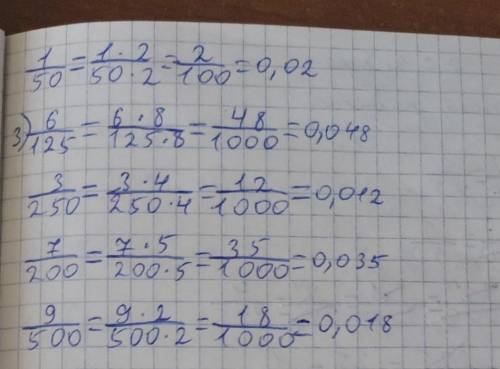 1/50 = 1·2/50·2 = 2/100 = 0,02
3) 6/125 = 6·8/125·8 = 48/1000 = 0,048
3/250 = 3·4/250·4 = 12/1000 = 0,012
7/200 = 7·5/200·5 = 35/1000 = 0,035
9/500 = 9·2/500·2 = 18/1000 = 0,018